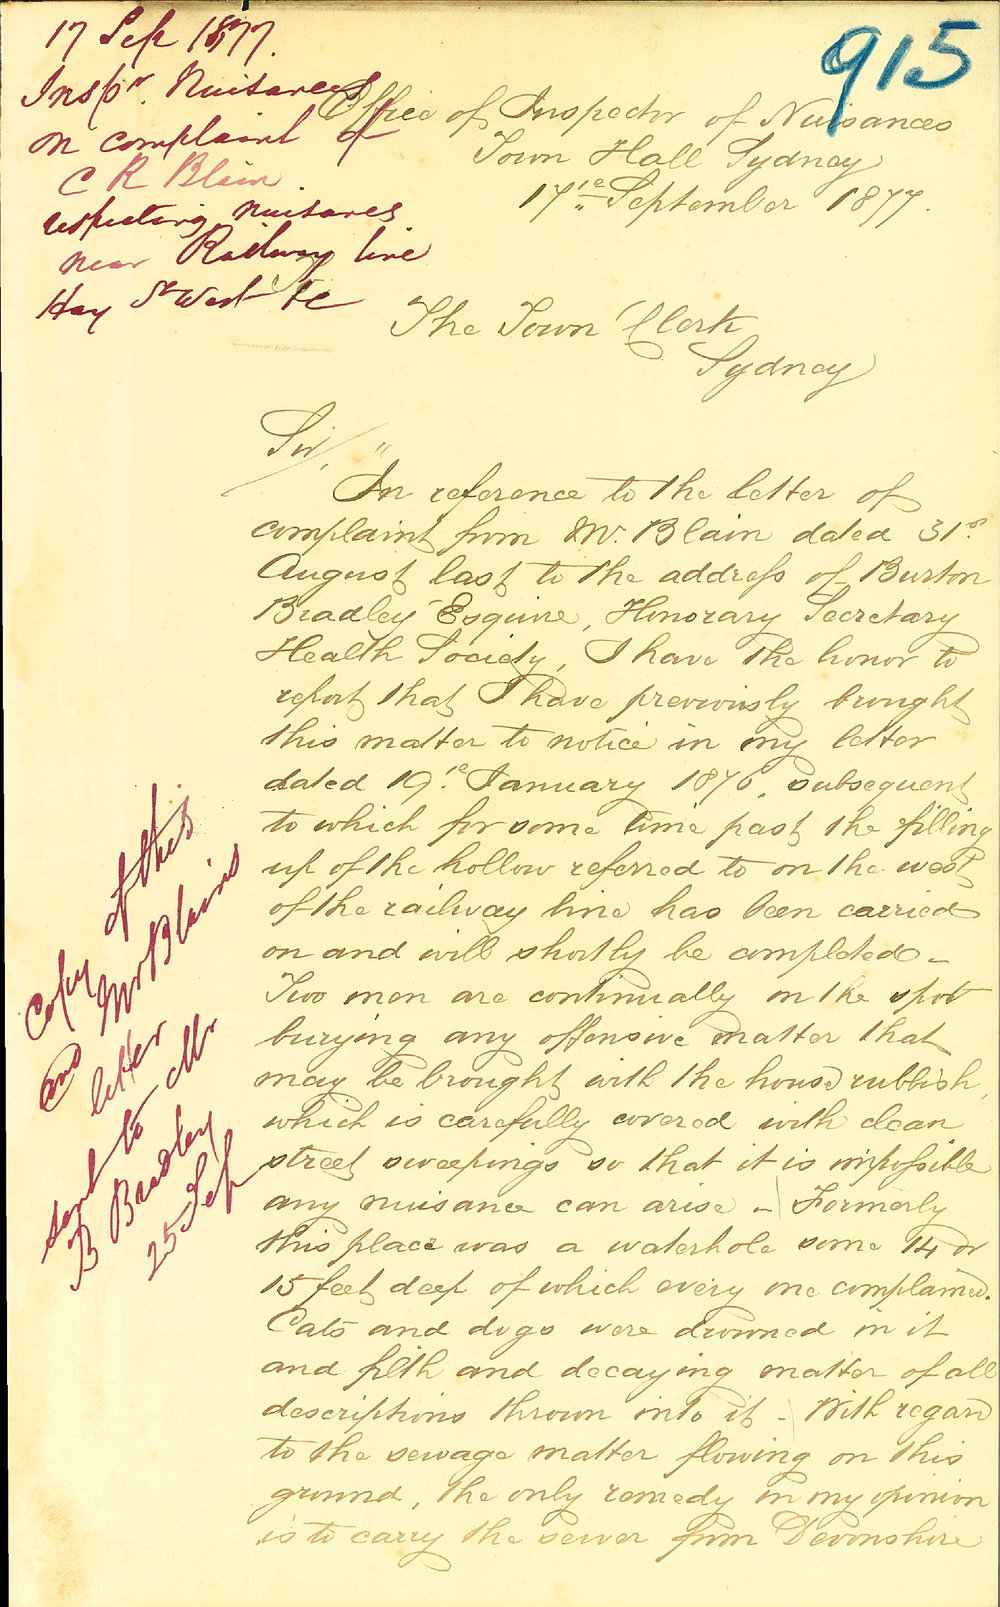 17 Sep 1877.
Inspr. Nuisances
on complaint of
C R Blain.
respecting nuisances
near Railway line
Hay St West &c
915
Office of Inspector of Nuisances
Town Hall Sydney
17th September 1877.
The Town Clerk
Sydney
Sir,
In reference to the letter of
complaint from Mr. Blain dated 31st
August last to the address of Burton
Bradley Esquire, Honorary Secretary
Health Society, I have the honor to
report that I have previously brought
this matter to notice in my letter
dated 19th January 1876, subsequent
to which for some time past the filling
up of the hollow referred to on the west
of the railway line has been carried
on and will shortly be completed -
Two men are continually on the spot
burying any offensive matter that
may be brought with the house rubbish,
which is carefully covered with clean
street sweepings so that it is impossible
any nuisance can arise - Formerly
this place was a waterhole some 14 or
15 feet deep of which every one complained.
Cats and dogs were drowned in it
and filth and decaying matter of all
descriptions thrown into it - With regard
to the sewage matter flowing on this
ground, the only remedy in my opinion
is to carry the sewer from Devonshire
Copy of this
and Mr Blains
letter
sent to Mr
B Bradley
25 Sep